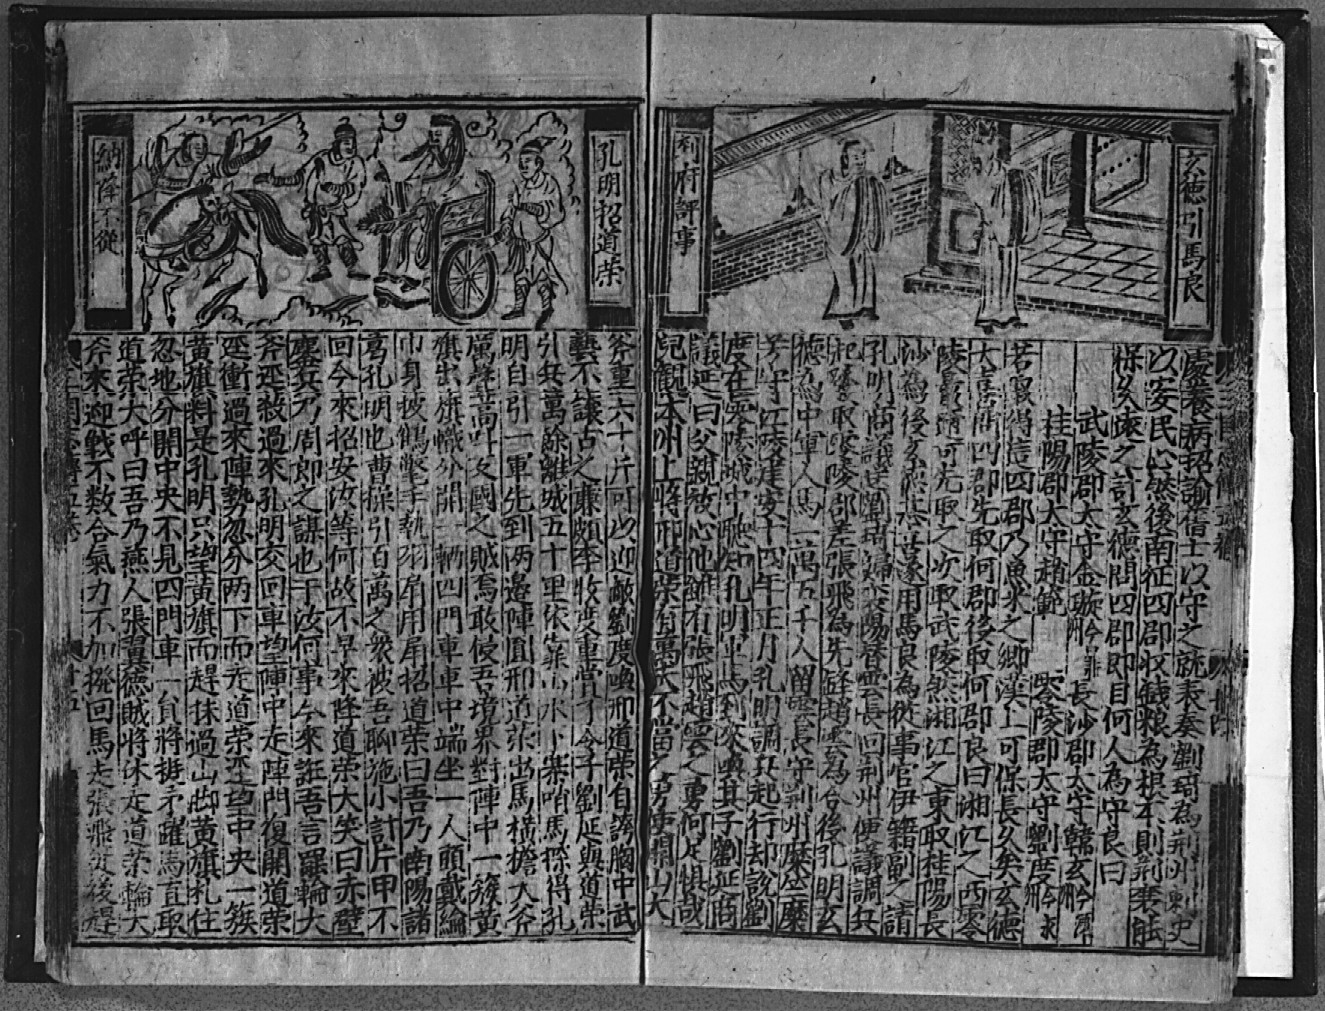 玄德引馬良
荊府評事
以安民心然後南征四郡收錢粮為根本則荊襄
保久遠之計玄德問四郡即目何人為守良曰
武陵郡太守金璇
長沙郡太守韓玄
桂陽郡太守趙範
零陵郡太守劉度
若襄得這四郡乃魚米之鄉漢上可保長久矣玄德
大喜問四郡先取何郡後取何郡良曰湘江之西零
陵最近可先取之次取武陵然湘江之東取桂陽長
沙為後玄德大喜遂用馬良為從事官伊籍副之請
孔明商議
雲長回荊州便議調兵
取零陵郡差張飛為先鋒趙雲為合後孔明玄
德為中軍人馬一萬五千人留雲長守荊州糜竺糜
芳守江陵建安十四年正月孔明調兵起行却說劉
度在零陵城中聽知孔明車馬到來與其子劉延商
議延曰父親放心他雖有張飛趙雲之勇何足懼哉
本州上將邢道榮有萬夫不當之勇使開山大
孔明招道荣
納降不從
斧重六十斤可以迎敵劉度喚邢道荣自誇胸中武
藝不讓古之廉頗李牧度重賞了令子劉延與道荣
引兵萬餘離城五十里依靠山水下寨哨馬探得孔
明自引一軍先到两邊陣圓邢道荣出馬橫擔大斧
厲聲高叫反國之賊焉敢侵吾境界對陣中一簇黃
旗出旗幟分開一輛四門車車中端坐一人頭戴綸
巾身披鶴氅手執羽扇用扇招道荣曰吾乃南陽諸
葛孔明也曹操引百萬之衆被吾聊施小計片甲不
回今來招安汝等何故不早來降道荣大笑曰赤壁
鏖兵乃周郎之謀也干汝何事今來誑吾言罷輪大
斧逕殺過來孔明交回車望陣中走陣門復開道荣
逕衝過來陣勢忽分两下而走道荣遥望中央一簇
黃旗料是孔明只望黃旗而趕抹過山脚黃旗扎住
忽地分開中央不見四門車一員將挺矛躍馬直取
道荣大呼曰吾乃燕人張翼德賊將休走道荣輪大
斧來迎戰不数合氣力不加撥回馬走張飛
後趕